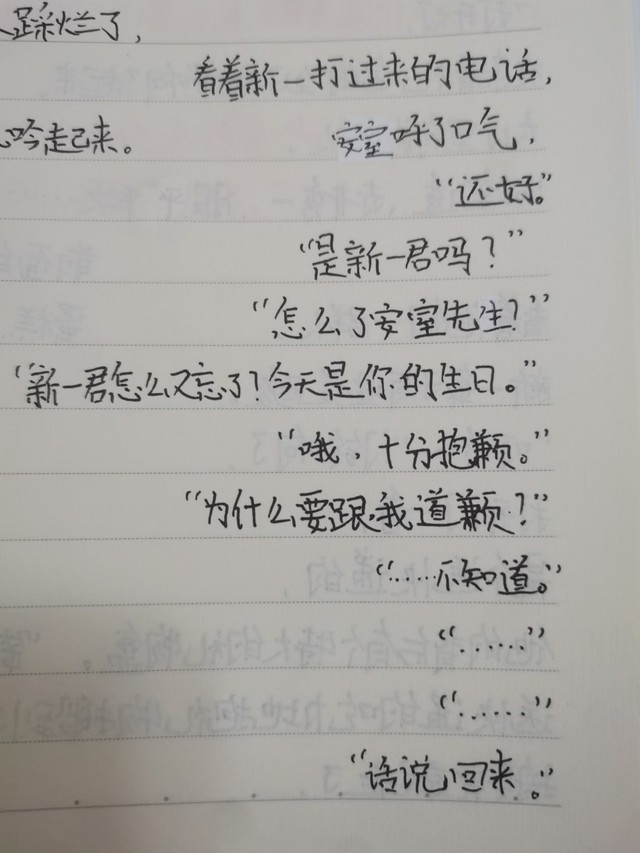 踩烂了，
看着新一打过来的电话，
吟走起来。 安室呼了口气，
“还好。”
“是新一君吗？”
“怎么了安室先生？”
“新一君怎么又忘了？今天是你的生日。”
“哦，十分抱歉。”
“为什么要跟我道歉？”
“……不知道。”
“……”
“……”
“话说回来。”